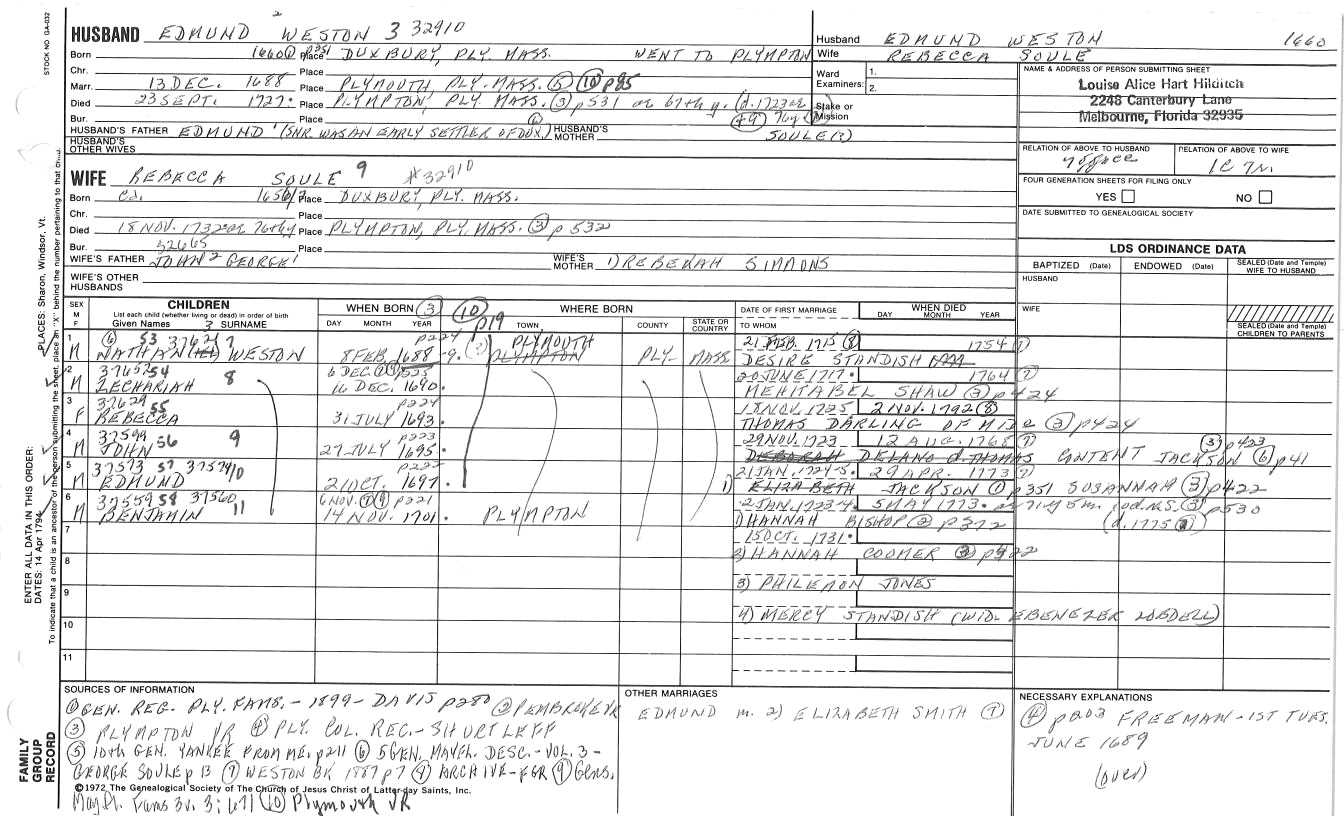 STOCK NO GA-032
HUSBAND EDMUND 2 WESTON 3 32910
Husband EDMUND WESTON 1660
Born 1660① p351 Place DUXBURY, PLY. MASS. WENT TO PLYMPTON
Wife REBECCA SOULE
Chr. Place
Marr. 13 DEC. 1688 Place PLYMOUTH, PLY. MASS. ⑤ ⑩ p85
Died 23 SEPT. 1727. Place PLYMPTON, PLY. MASS. ③ p531 ae 67th y. (d. 1723 ae
Bur. Place
HUSBAND'S FATHER EDMUND' (SNR. WAS AN EARLY SETTLER OF DUX.) HUSBAND'S MOTHER SOULE(?)
HUSBAND'S OTHER WIVES
Ward Examiners: 1. 2.
Stake or Mission
NAME & ADDRESS OF PERSON SUBMITTING SHEET
Louise Alice Hart Hilditch
2248 Canterbury Lane
Melbourne, Florida 32935
RELATION OF ABOVE TO HUSBAND
RELATION OF ABOVE TO WIFE
FOUR GENERATION SHEETS FOR FILING ONLY
YES NO
DATE SUBMITTED TO GENEALOGICAL SOCIETY
WIFE REBECCA SOULE 9 #32910
Born Cd. 1656/7 Place DUXBURY, PLY. MASS.
Chr. Place
Died 18 NOV. 1732 ae 76th y Place PLYMPTON, PLY. MASS. ③ p 532
Bur. 32665 Place
WIFE'S FATHER JOHN2 GEORGE1 WIFE'S MOTHER 1) REBEKAH SIMMONS
WIFE'S OTHER HUSBANDS
LDS ORDINANCE DATA
BAPTIZED (Date) ENDOWED (Date) SEALED (Date and Temple) WIFE TO HUSBAND
HUSBAND
WIFE
SEALED (Date and Temple) CHILDREN TO PARENTS
SEX M F
CHILDREN
List each child (whether living or dead) in order of birth
Given Names 3 SURNAME
WHEN BORN ③ ⑩ p19
DAY MONTH YEAR
WHERE BORN
TOWN COUNTY STATE OR COUNTRY
DATE OF FIRST MARRIAGE
TO WHOM
WHEN DIED
DAY MONTH YEAR
1 M ⑥ 53 37621 7 NATHAN WESTON p224 8 FEB. 1688-9. PLYMOUTH PLYMPTON PLY. MASS 21 FEB. 1715 ⑧ 1754 ⑦ DESIRE STANDISH
2 M 37652 54 ZECHARIAH 8 6 DEC 16 DEC. 1690. 20 JUNE 1717. 1764 ⑦ MEHITABEL SHAW ③ p424
3 F 37629 55 REBECCA p224 31 JULY 1693. 18 NOV. 1725 2 NOV. 1792 ⑧ THOMAS DARLING OF MID. ③ p424
4 M 37599 56 JOHN 9 p223 27 JULY 1695. 29 NOV. 1723 12 AUG. 1768 ⑦ DEBORAH DELANO d. THOMAS CONTENT JACKSON ③ p423 ⑥ p41
5 M 37573 57 37574 10 EDMUND p222 21 OCT. 1697. 21 JAN. 1724-5. 29 APR. 1773 ⑦ 1) ELIZABETH JACKSON ① p351 SUSANNAH ③ p422
6 M 37559 58 37560 11 BENJAMIN 6 NOV. ⑦⑨ p221 14 NOV. 1701. PLYMPTON 2 JAN. 1723-4. 5 MAY 1773. ae 71 y 5 m. (od. N.S. ③ p530
1) HANNAH BISHOP ② p372 (d. 1775
7 15 OCT. 1731.
8 2) HANNAH COOMER
9 3) PHILEMON JONES
10 4) MERCY STANDISH (WID. EBENEZER LOBDELL)
11
ENTER ALL DATA IN THIS ORDER:
DATES: 14 Apr 1794
PLACES: Sharon, Windsor, Vt.
To indicate that a child is an ancestor of the person submitting the sheet, place an "X" behind the number pertaining to that child.
FAMILY GROUP RECORD
SOURCES OF INFORMATION
① GEN. REG. PLY. FAMS. - 1899 - DAVIS p280 ② PEMBROKE VR
③ PLYMPTON VR ④ PLY. COL. REC. - SHURTLEFF
⑤ 10th GEN. YANKEE FROM ME. p211 ⑥ 5 GEN. MAYFL. DESC. - VOL. 3 -
GEORGE SOULE p 13 ⑦ WESTON BK 1887 p7 ARCHIVE - FGR ⑨ Gens.
©1972 The Genealogical Society of The Church of Jesus Christ of Latter-day Saints, Inc.
Mayfl. Fams 3v. 3:671 (10) Plymouth VR
OTHER MARRIAGES
EDMUND m. 2) ELIZABETH SMITH ⑦
NECESSARY EXPLANATIONS
④ p203 FREEMAN - 1ST TUES.
JUNE 1689
(over)